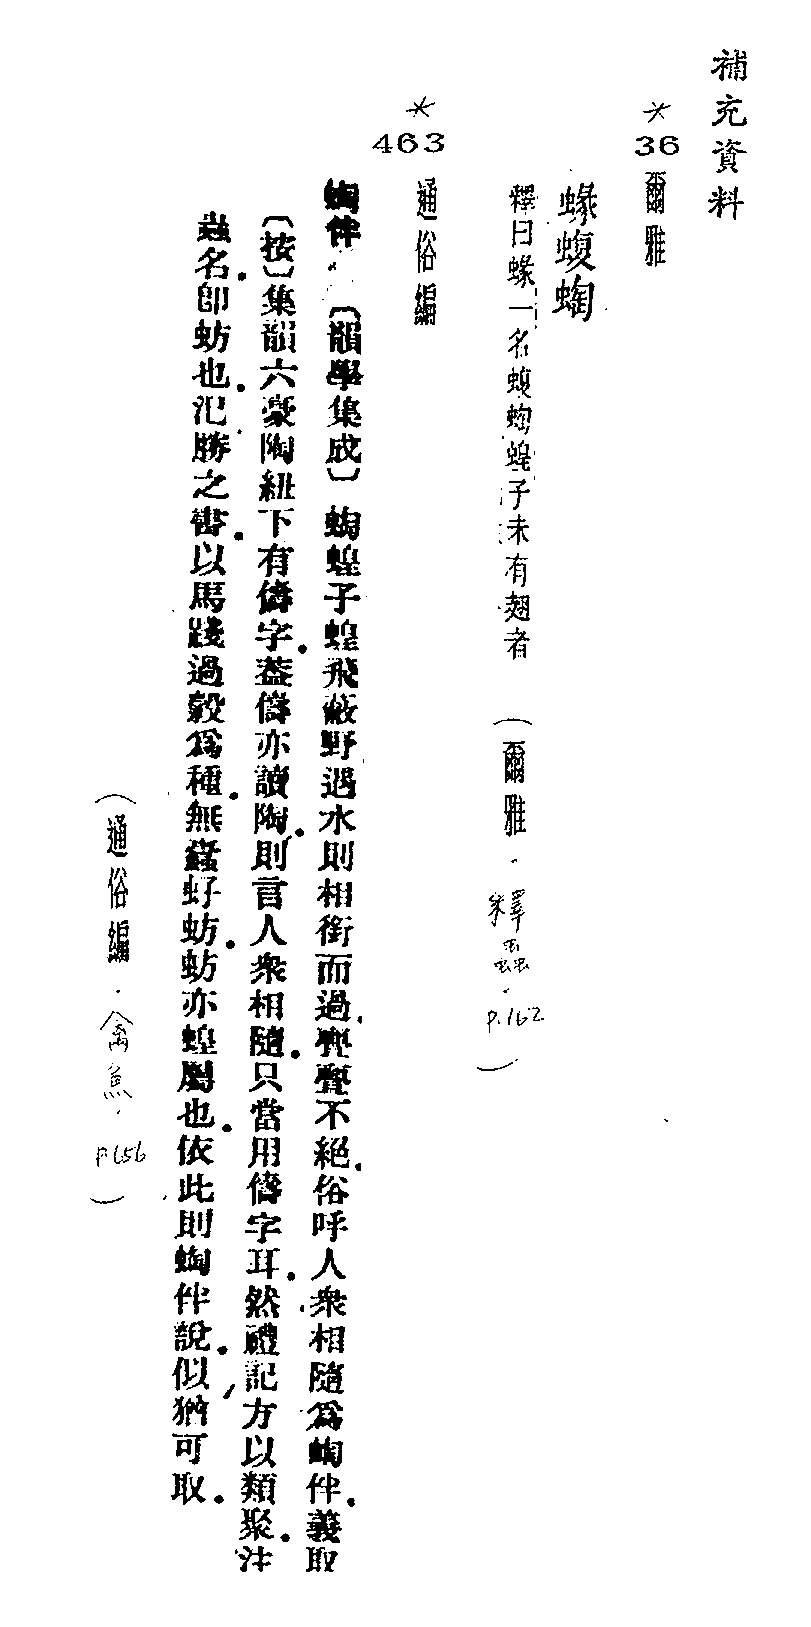 補充資料
*
36
爾雅
蝝蝮蜪
釋曰蝝一名蝮蜪蝗子未有翅者
(爾雅.釋蟲.P.162)
*
463
通俗編
蜪伴〔韻學集成〕蜪蝗子蝗飛蔽野遇水則相銜而過亹亹不絕俗呼人衆相隨爲蜪伴義取
〔按〕集韻六豪陶紐下有儔字葢儔亦讀陶則言人衆相隨只當用儔字耳然禮記方以類聚注
蟲名卽蚄也氾勝之書以馬踐過穀爲種無蠧虸蚄蚄亦蝗屬也依此則蜪伴說似猶可取
(通俗編.禽魚.P.656)